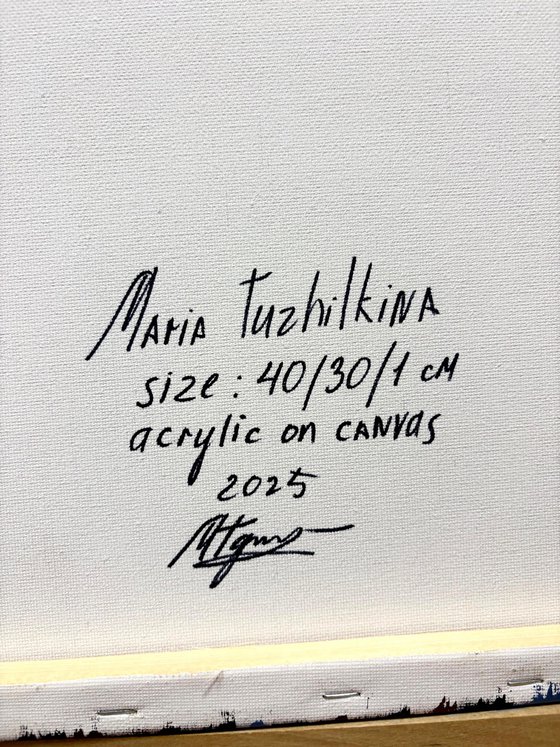 Maria Tuzhilkina
size: 40/30/1 cm
acrylic on canvas
2025